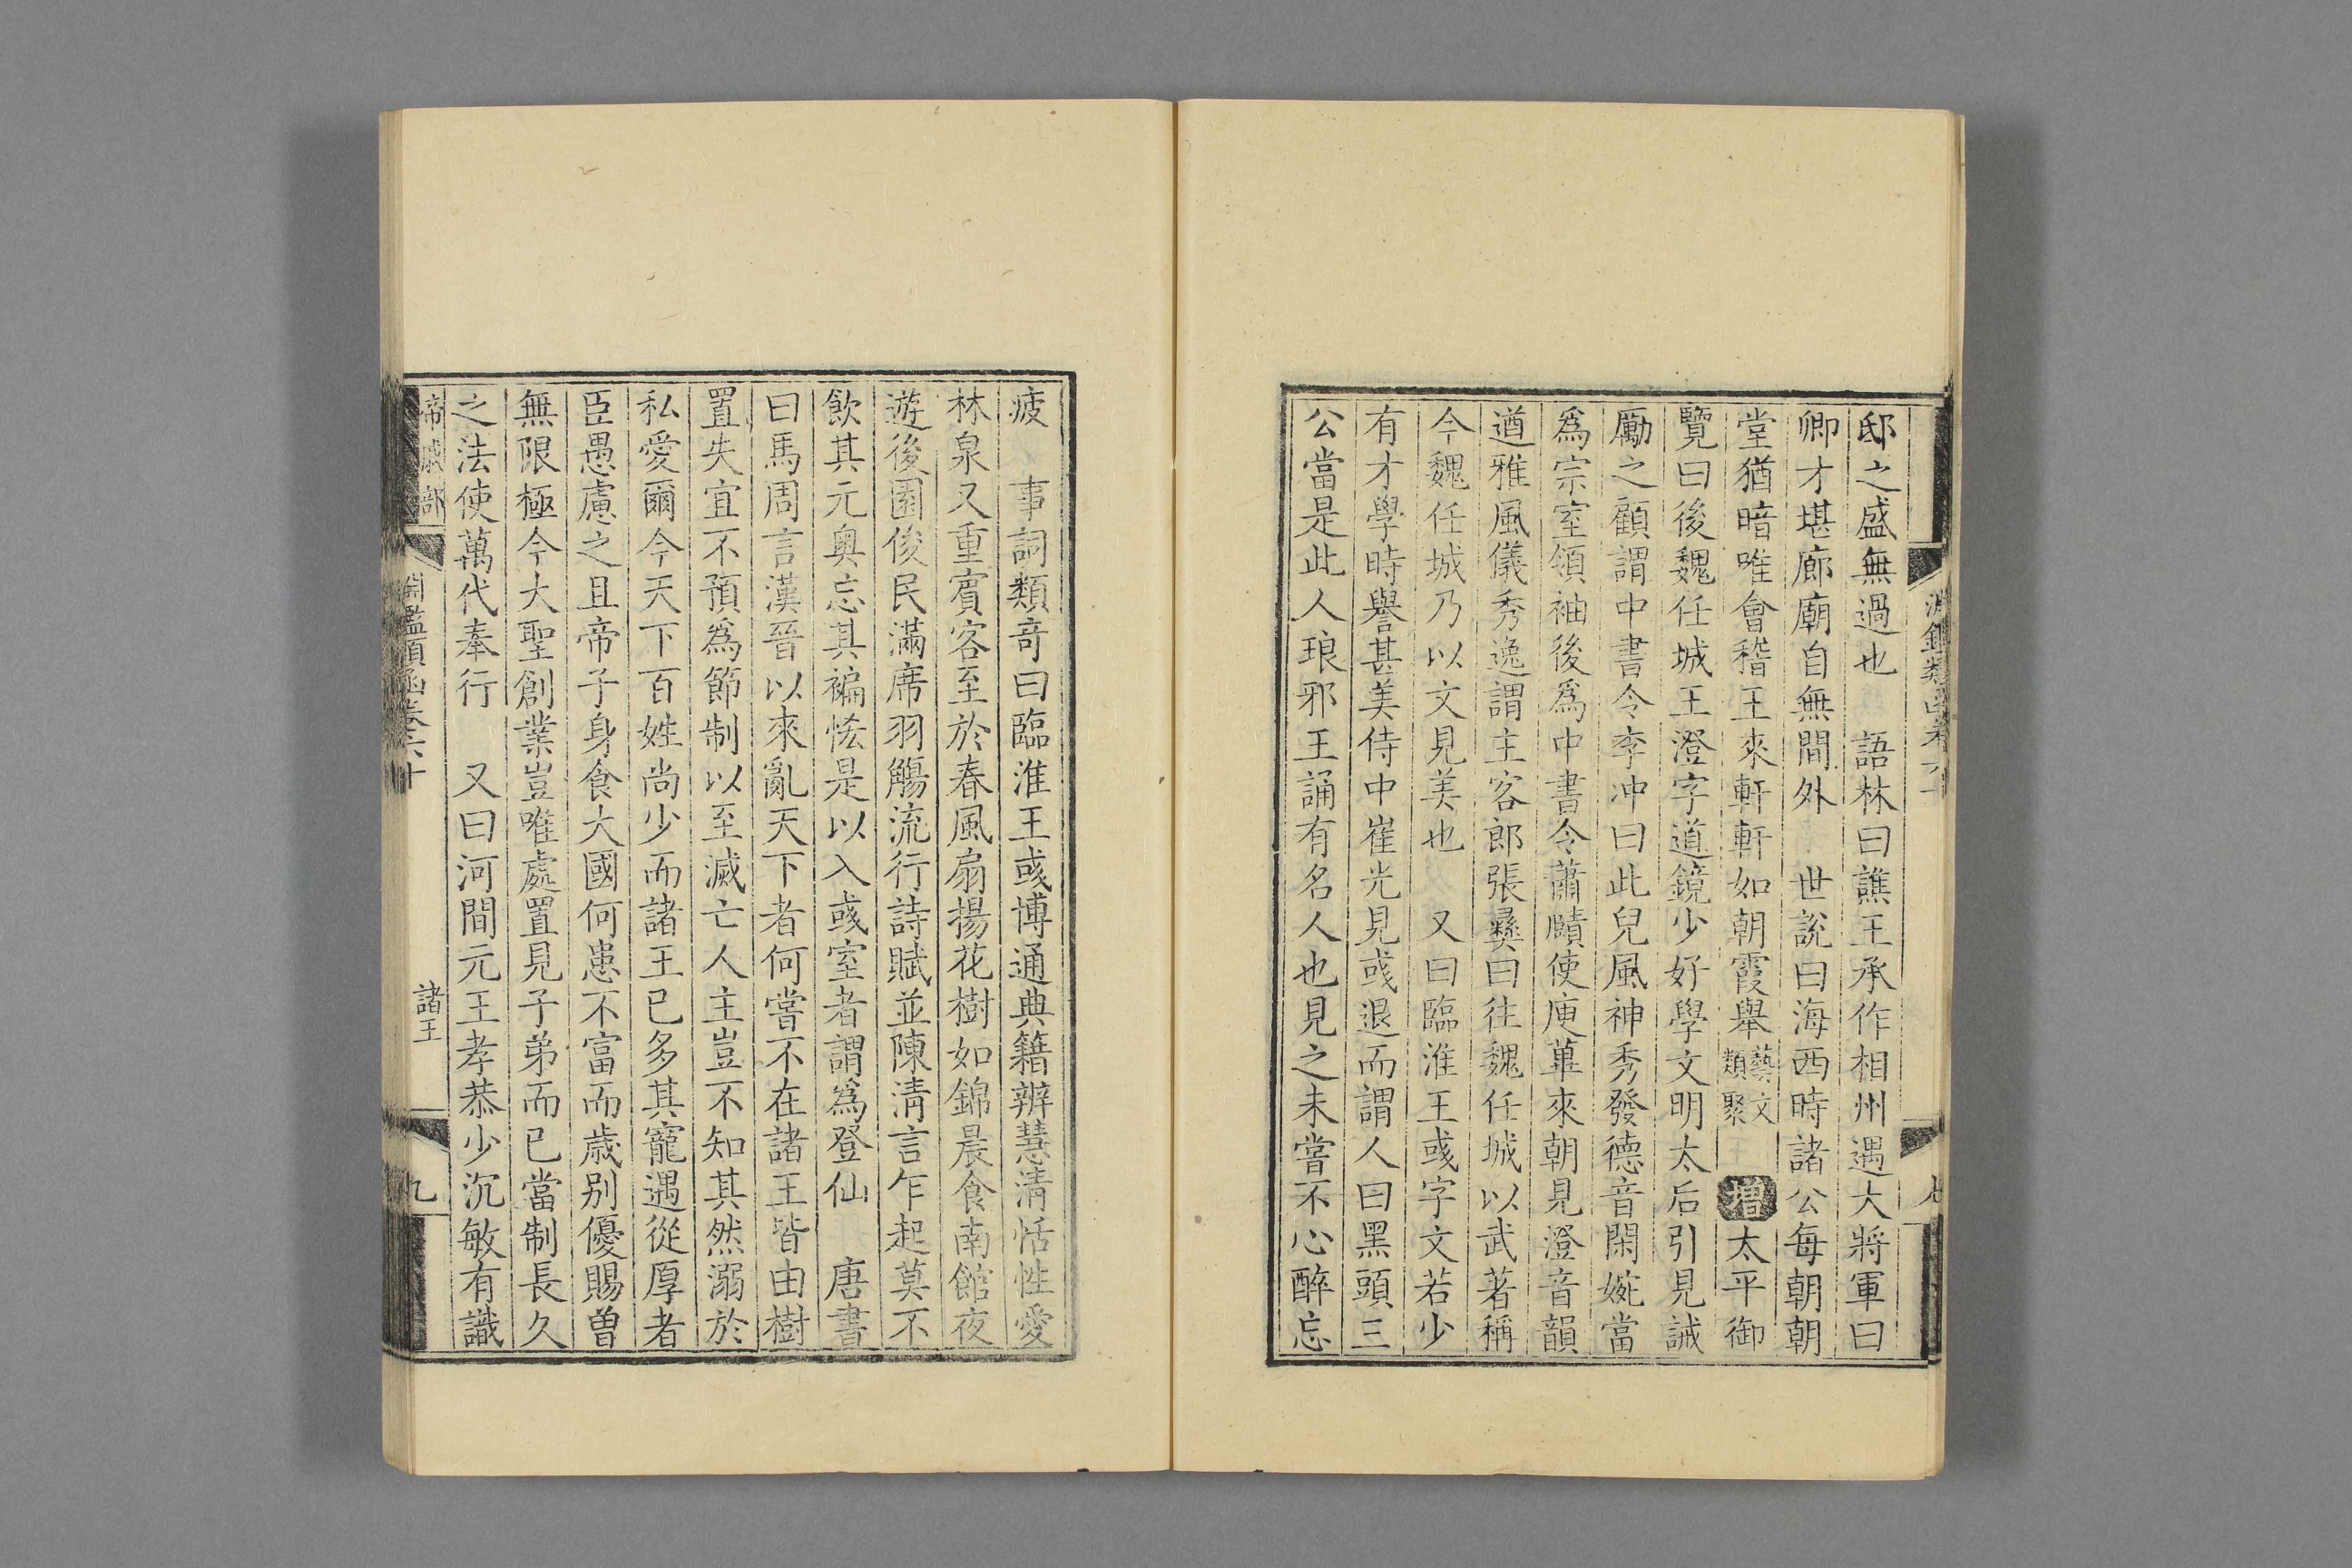 邸之盛無過也　語林曰譙王承作相州遇大將軍曰
卿才堪廊廟自無間外　世說曰海西時諸公每朝朝
堂猶暗唯會稽王來軒軒如朝霞舉藝文類聚　增太平御
覽曰後魏任城王澄字道鏡少好學文明太后引見誡
厲之顧謂中書令李沖曰此兒風神秀發德音閑婉當
爲宗室領袖後爲中書令蕭賾使庾蓽來朝見澄音韻
遒雅風儀秀逸謂主客郎張彝曰往魏任城以武著稱
今魏任城乃以文見美也　又曰臨淮王彧字文若少
有才學時譽甚美侍中崔光見彧退而謂人曰黑頭三
公當是此人琅邪王誦有名人也見之未嘗不心醉忘
疲　事詞類奇曰臨淮王彧博通典籍辨慧清恬性愛
林泉又重賓客至於春風扇揚花樹如錦晨食南館夜
遊後園俊民滿席羽觴流行詩賦並陳清言乍起莫不
飲其元奧忘其褊恡是以入彧室者謂爲登仙　唐書
曰馬周言漢晉以來亂天下者何嘗不在諸王皆由樹
置失宜不預爲節制以至滅亡人主豈不知其然溺於
私愛爾今天下百姓尚少而諸王已多其寵遇從厚者
臣愚慮之且帝子身食大國何患不富而歲别優賜曾
無限極今大聖創業豈唯處置見子弟而已當制長久
之法使萬代奉行　又曰河間元王孝恭少沉敏有識
帝戚部
淵鑑類函卷六十
諸王
九